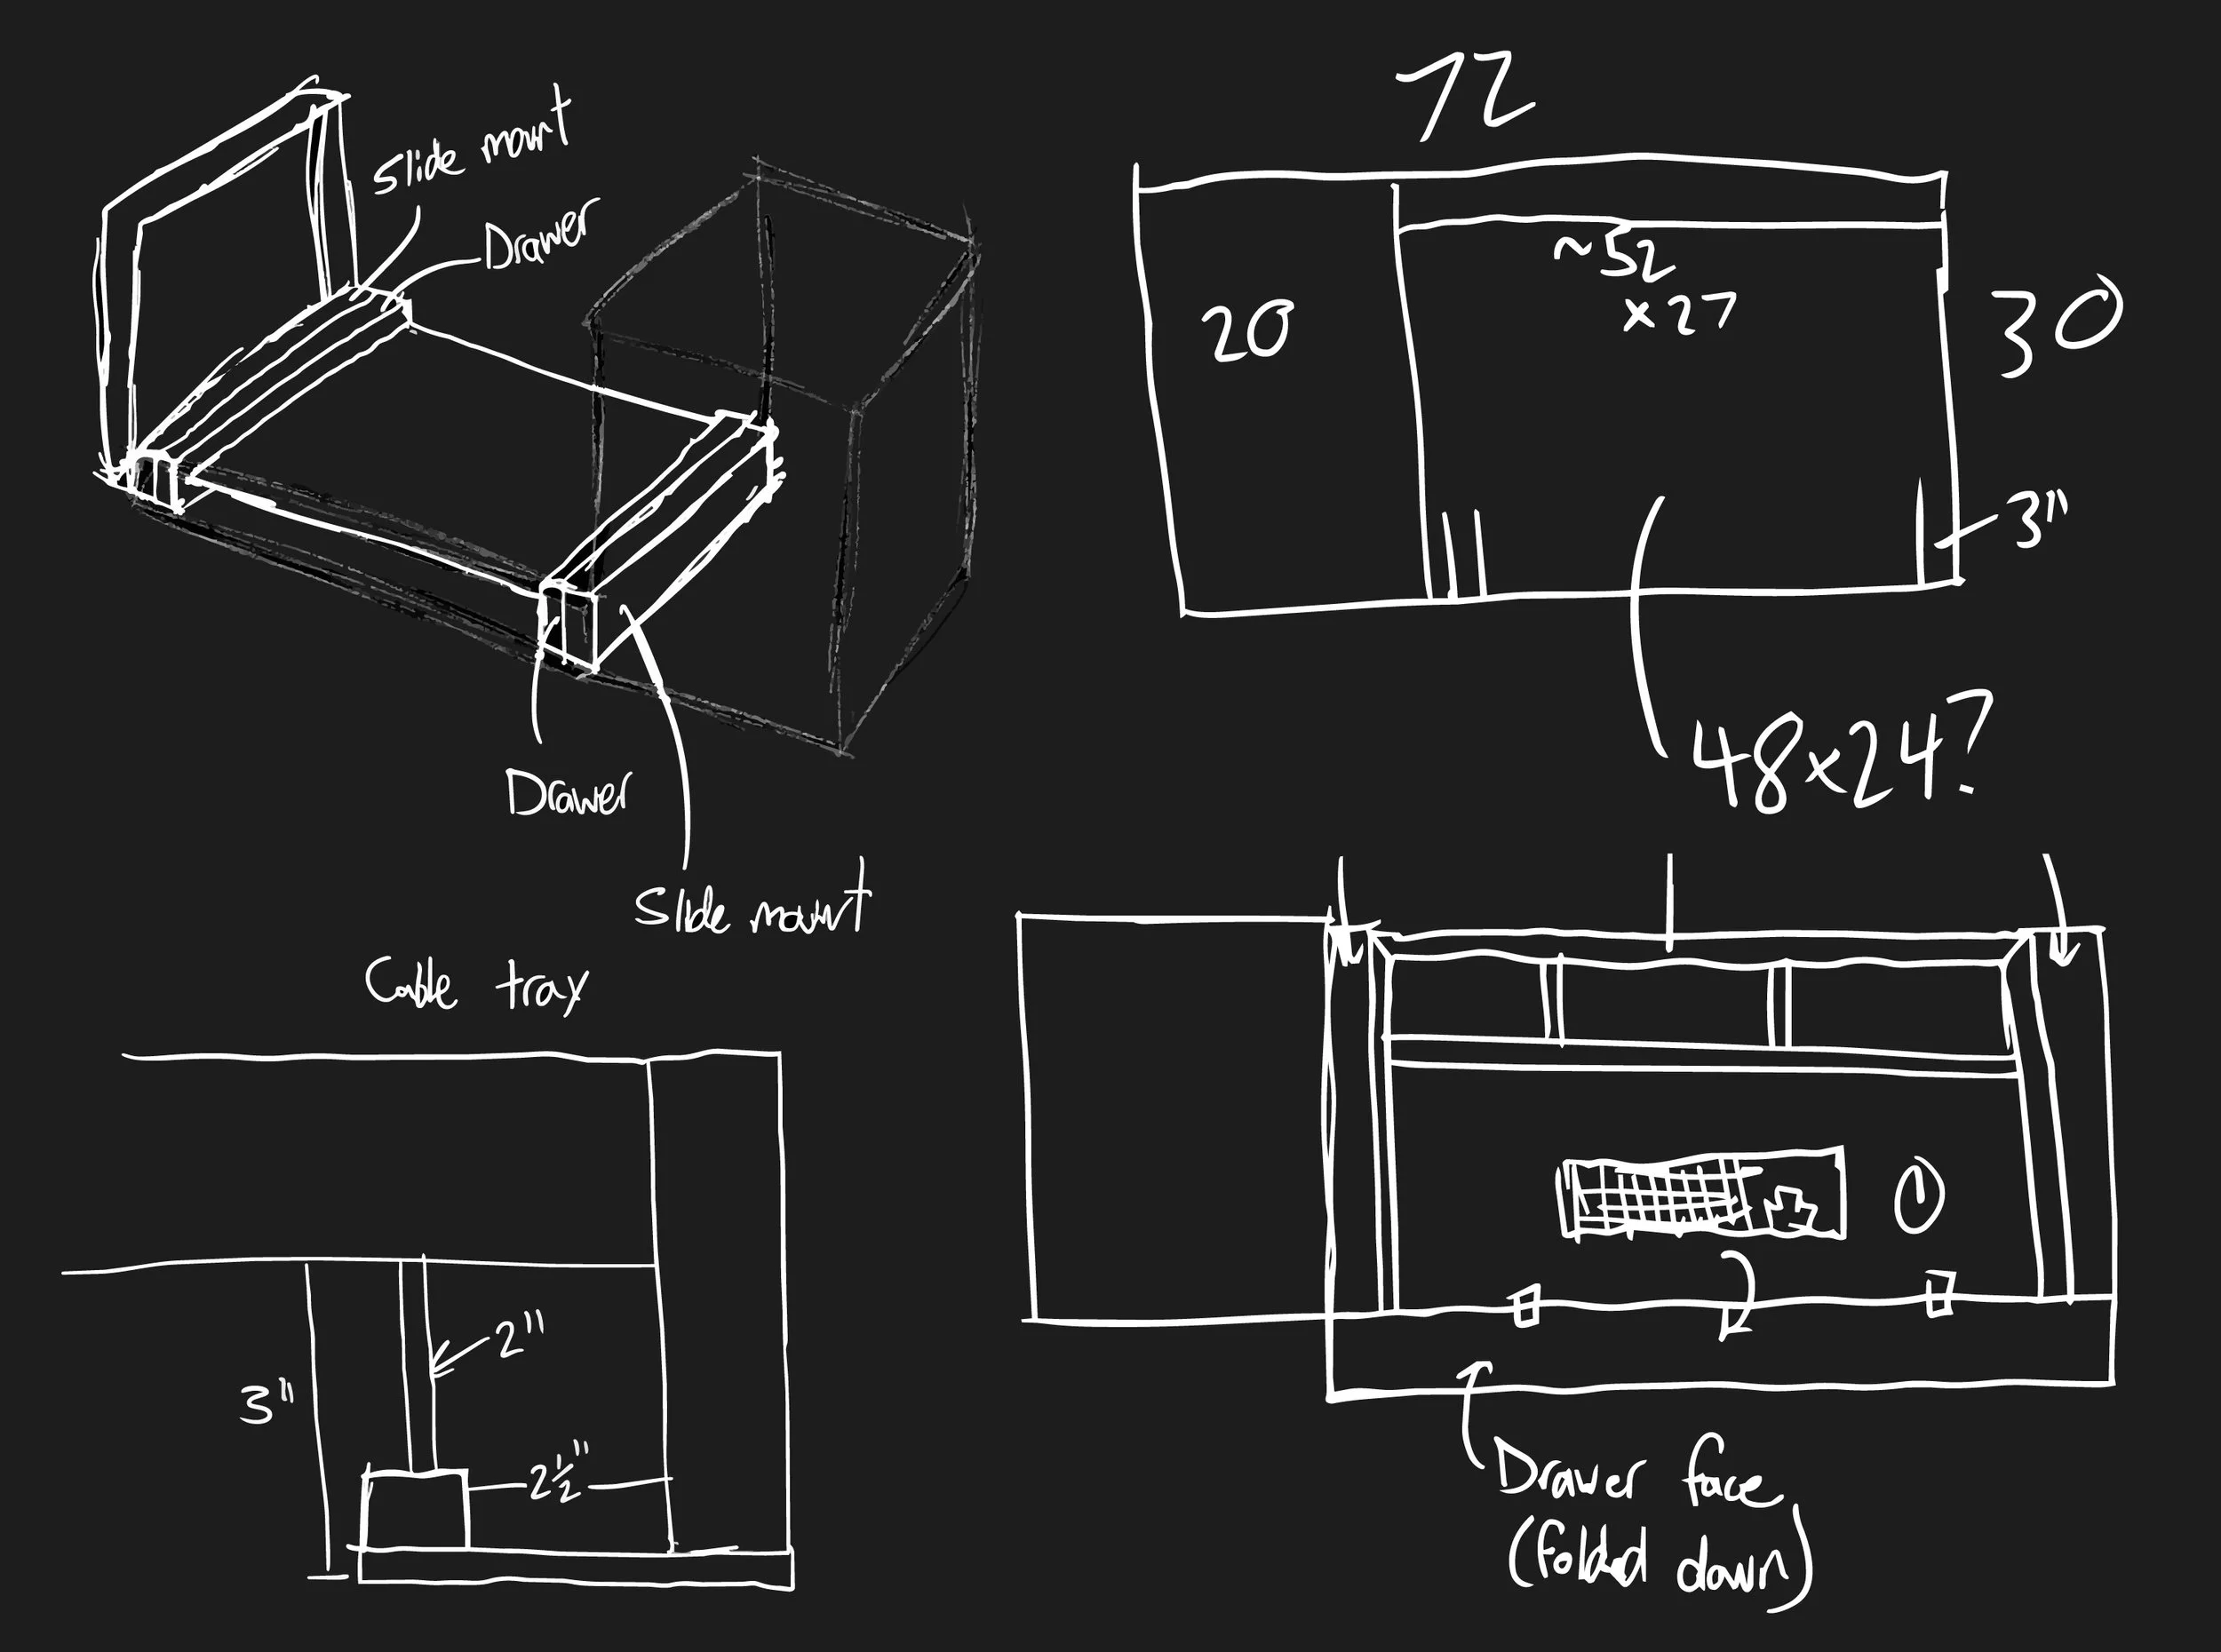 Slide mount
Drawer
Drawer
Slide mount
72
20
~52
x27
30
3"
48x24?
Cable tray
3"
2"
2½"
Drawer face
(folded down)